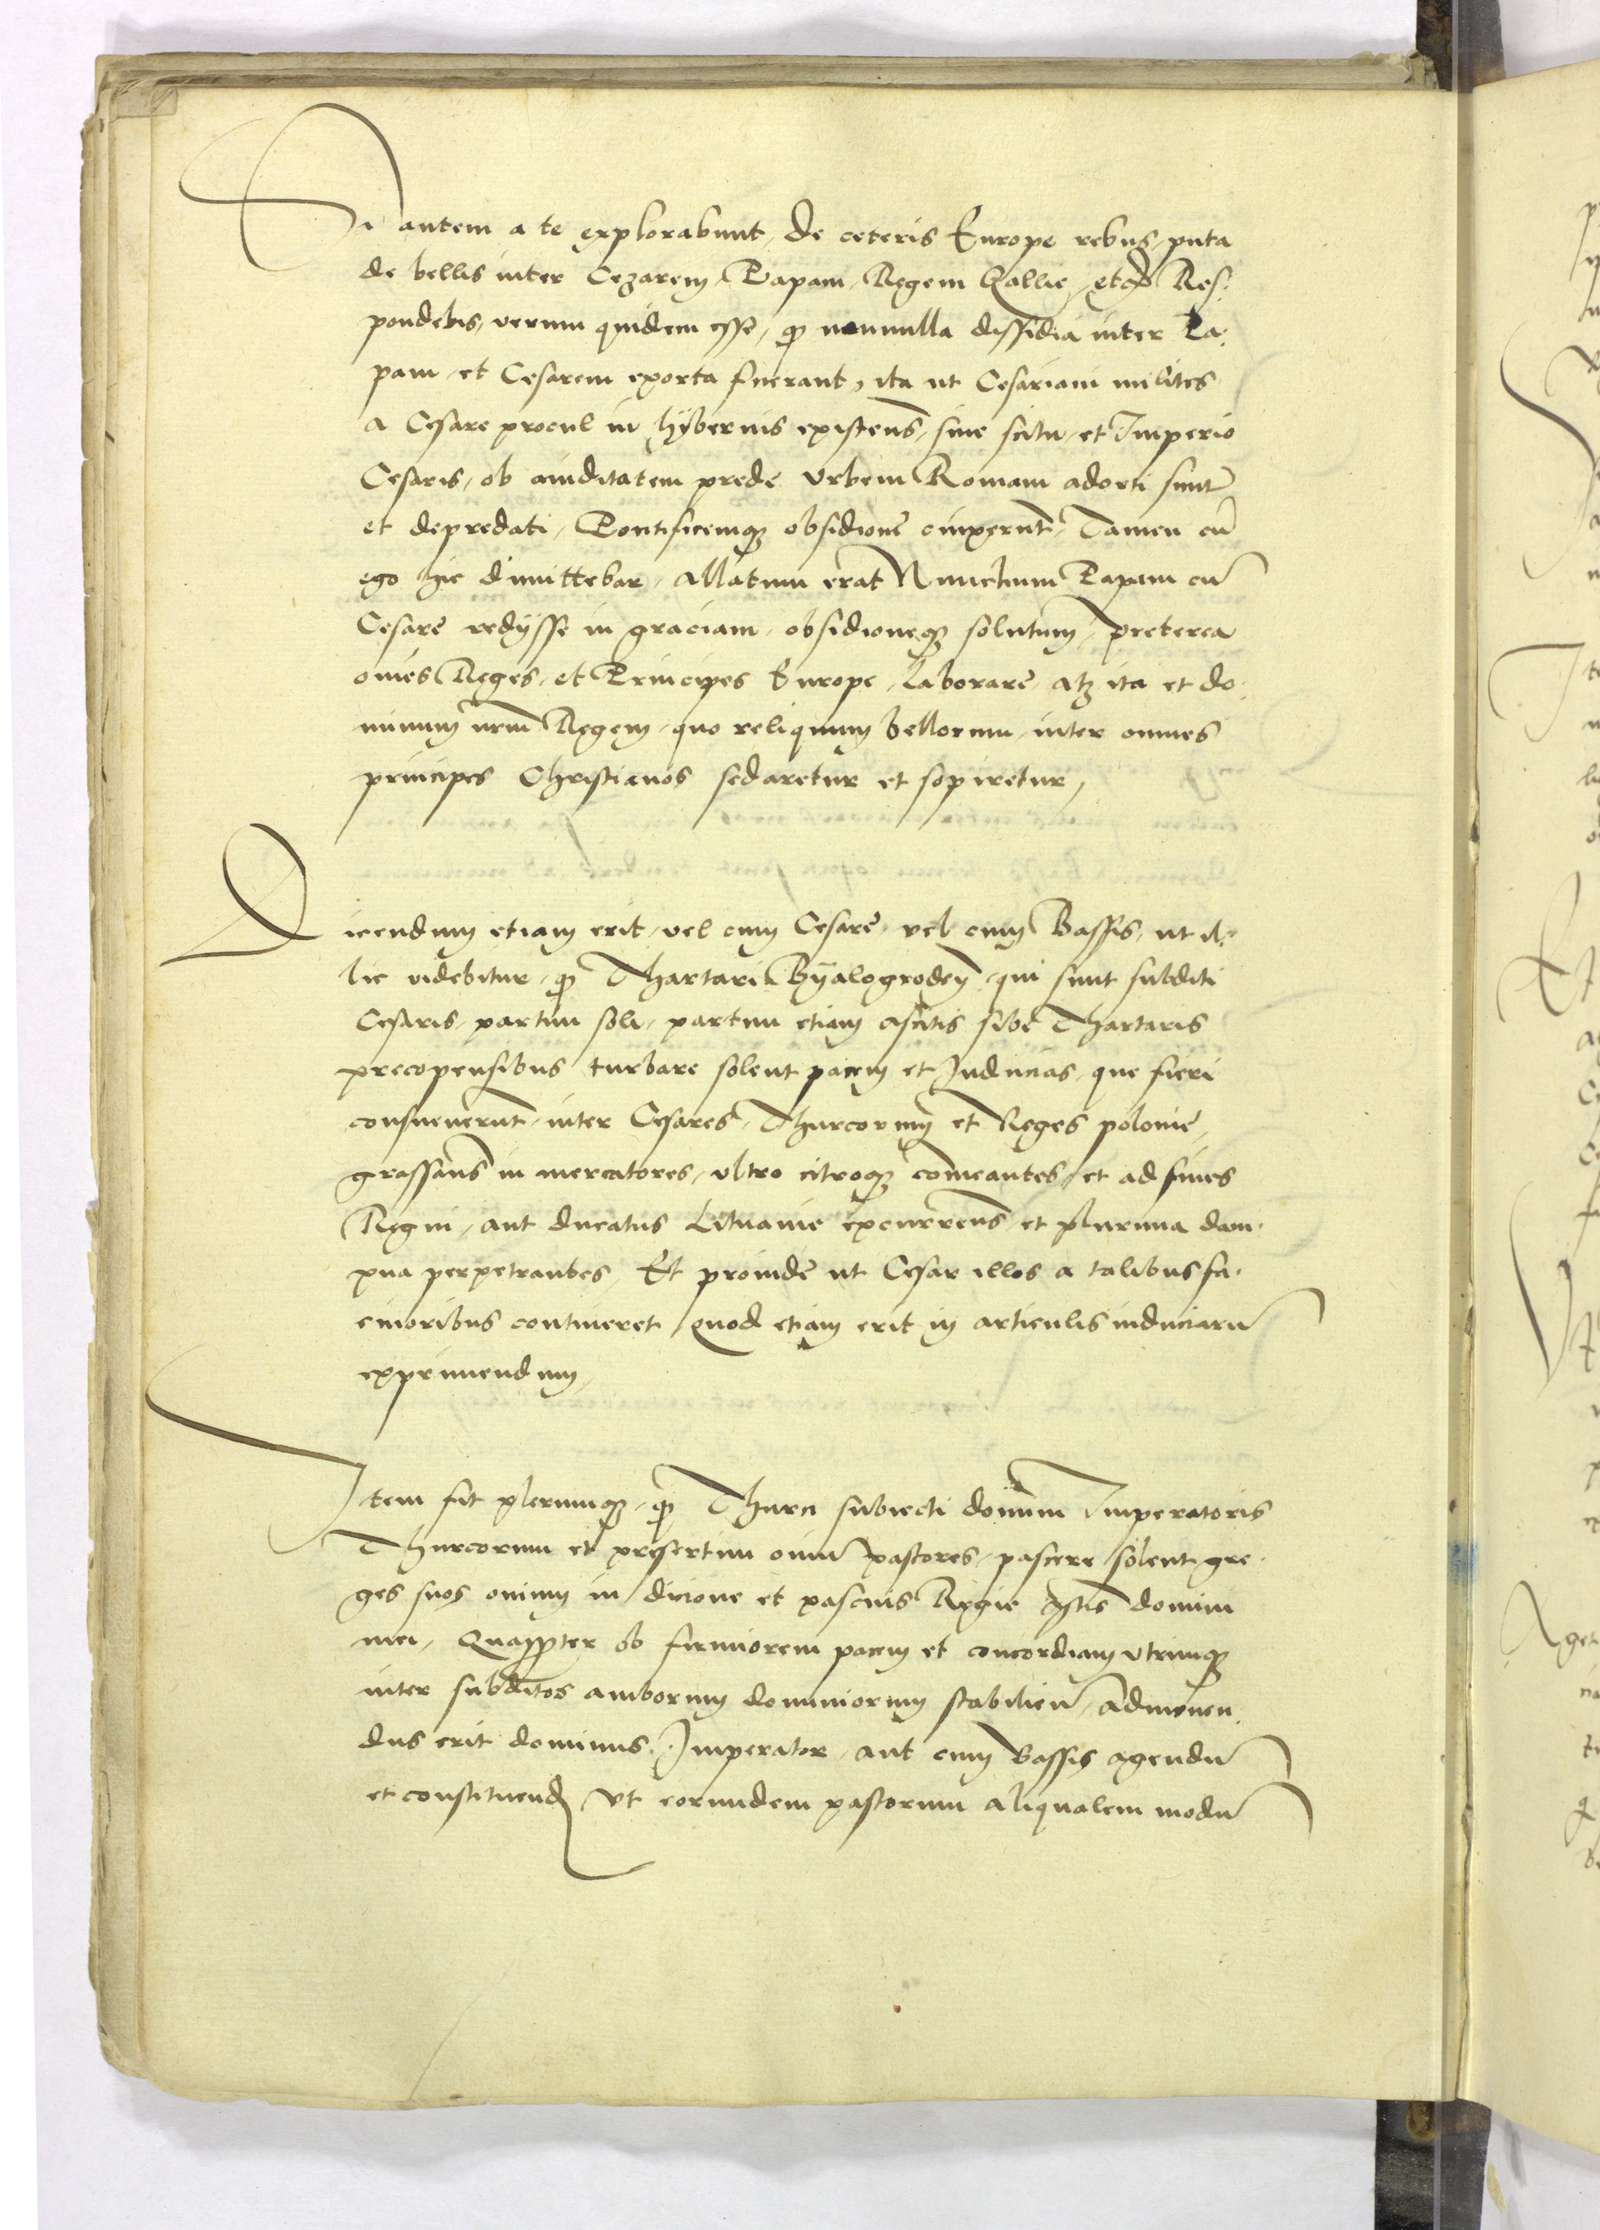 Si autem a te explorabunt, de ceteris Europe rebus, puta
de bellis inter Cezarem, Papam, Regem Gallie, etc̃ Res-
pondebis, verum quidem esse, q̃ nonnulla dissidia inter Pa-
pam et Cesarem exorta fuerant, ita ut Cesariani milites
a Cesare procul in hybernis existens̃, sine scitu et Imperio
Cesaris, ob auiditatem prede Vrbem Romam adorti sunt
et depredati, Pontificemq̃ obsidione cinxerunt, Tamen cũ
ego hic dimittebar, allatum erat Nunctium Papam cũ
Cesare redysse in graciam, obsidioneq̃ solutum, preterea
om̃es Reges, et Principes Europe, laborare atq̃ ita et do-
minum nr̃m Regem, quo reliquum bellorum, inter omnes
principes Christianos sedaretur et sopiretur,
Dicendum etiam erit, vel cum Cesare, vel cum Bassis, ut il-
lic videbitur, q̃ Thartari Byalogroden̄, qui sunt subditi
Cesaris, partim soli, partim etiam ascitis sibi Thartaris
precopensibus turbare solent pacem et Inducias, que fieri
consueuerunt, inter Cesares Thurcorum et Reges polonie,
grassañs in mercatores, vltro citroq̃ com̃eantes, et ad fines
Regni, aut ducatus Lituanie excurreñs, et plurima dam-
pna perpetrantes, Et proinde ut Cesar illos a talibus fa-
cinoribus contineret, Quod etiam erit in articulis induciarũ
exprimendum,
Item fit plerumq̃, q̃ Thurci subiecti domini Imperatoris
Thurcorum et presertim ouiũ pastores, pascere solent gre-
ges suos ouium in dicione et pascuis Regie Mtis domini
mei, Quapp̃ter ob firmiorem pacem et concordiam vtrimq̃
inter subditos amborum dominorum stabilien̄, admonen-
dus erit dominus Imperator, aut cum Bassis agendũ
et constituend̃ Vt eorundem pastorum aliqualem modũ